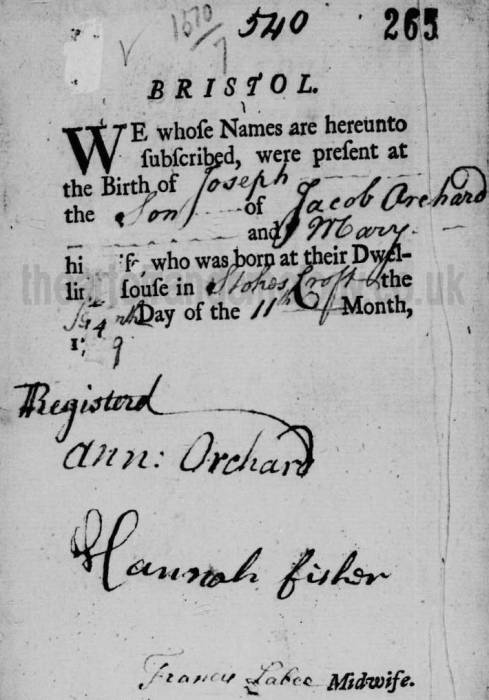 1670/7 540 265
BRISTOL.
WE whoſe Names are hereunto
ſubſcribed, were preſent at
the Birth of Joseph
the Son of Jacob Orchard
and Mary
hi who was born at their Dwel-
lin Houſe in Stokes Croft the
Day of the 11th Month,
Registerd
Ann: Orchard
Hannah Fisher
Francis Midwife.